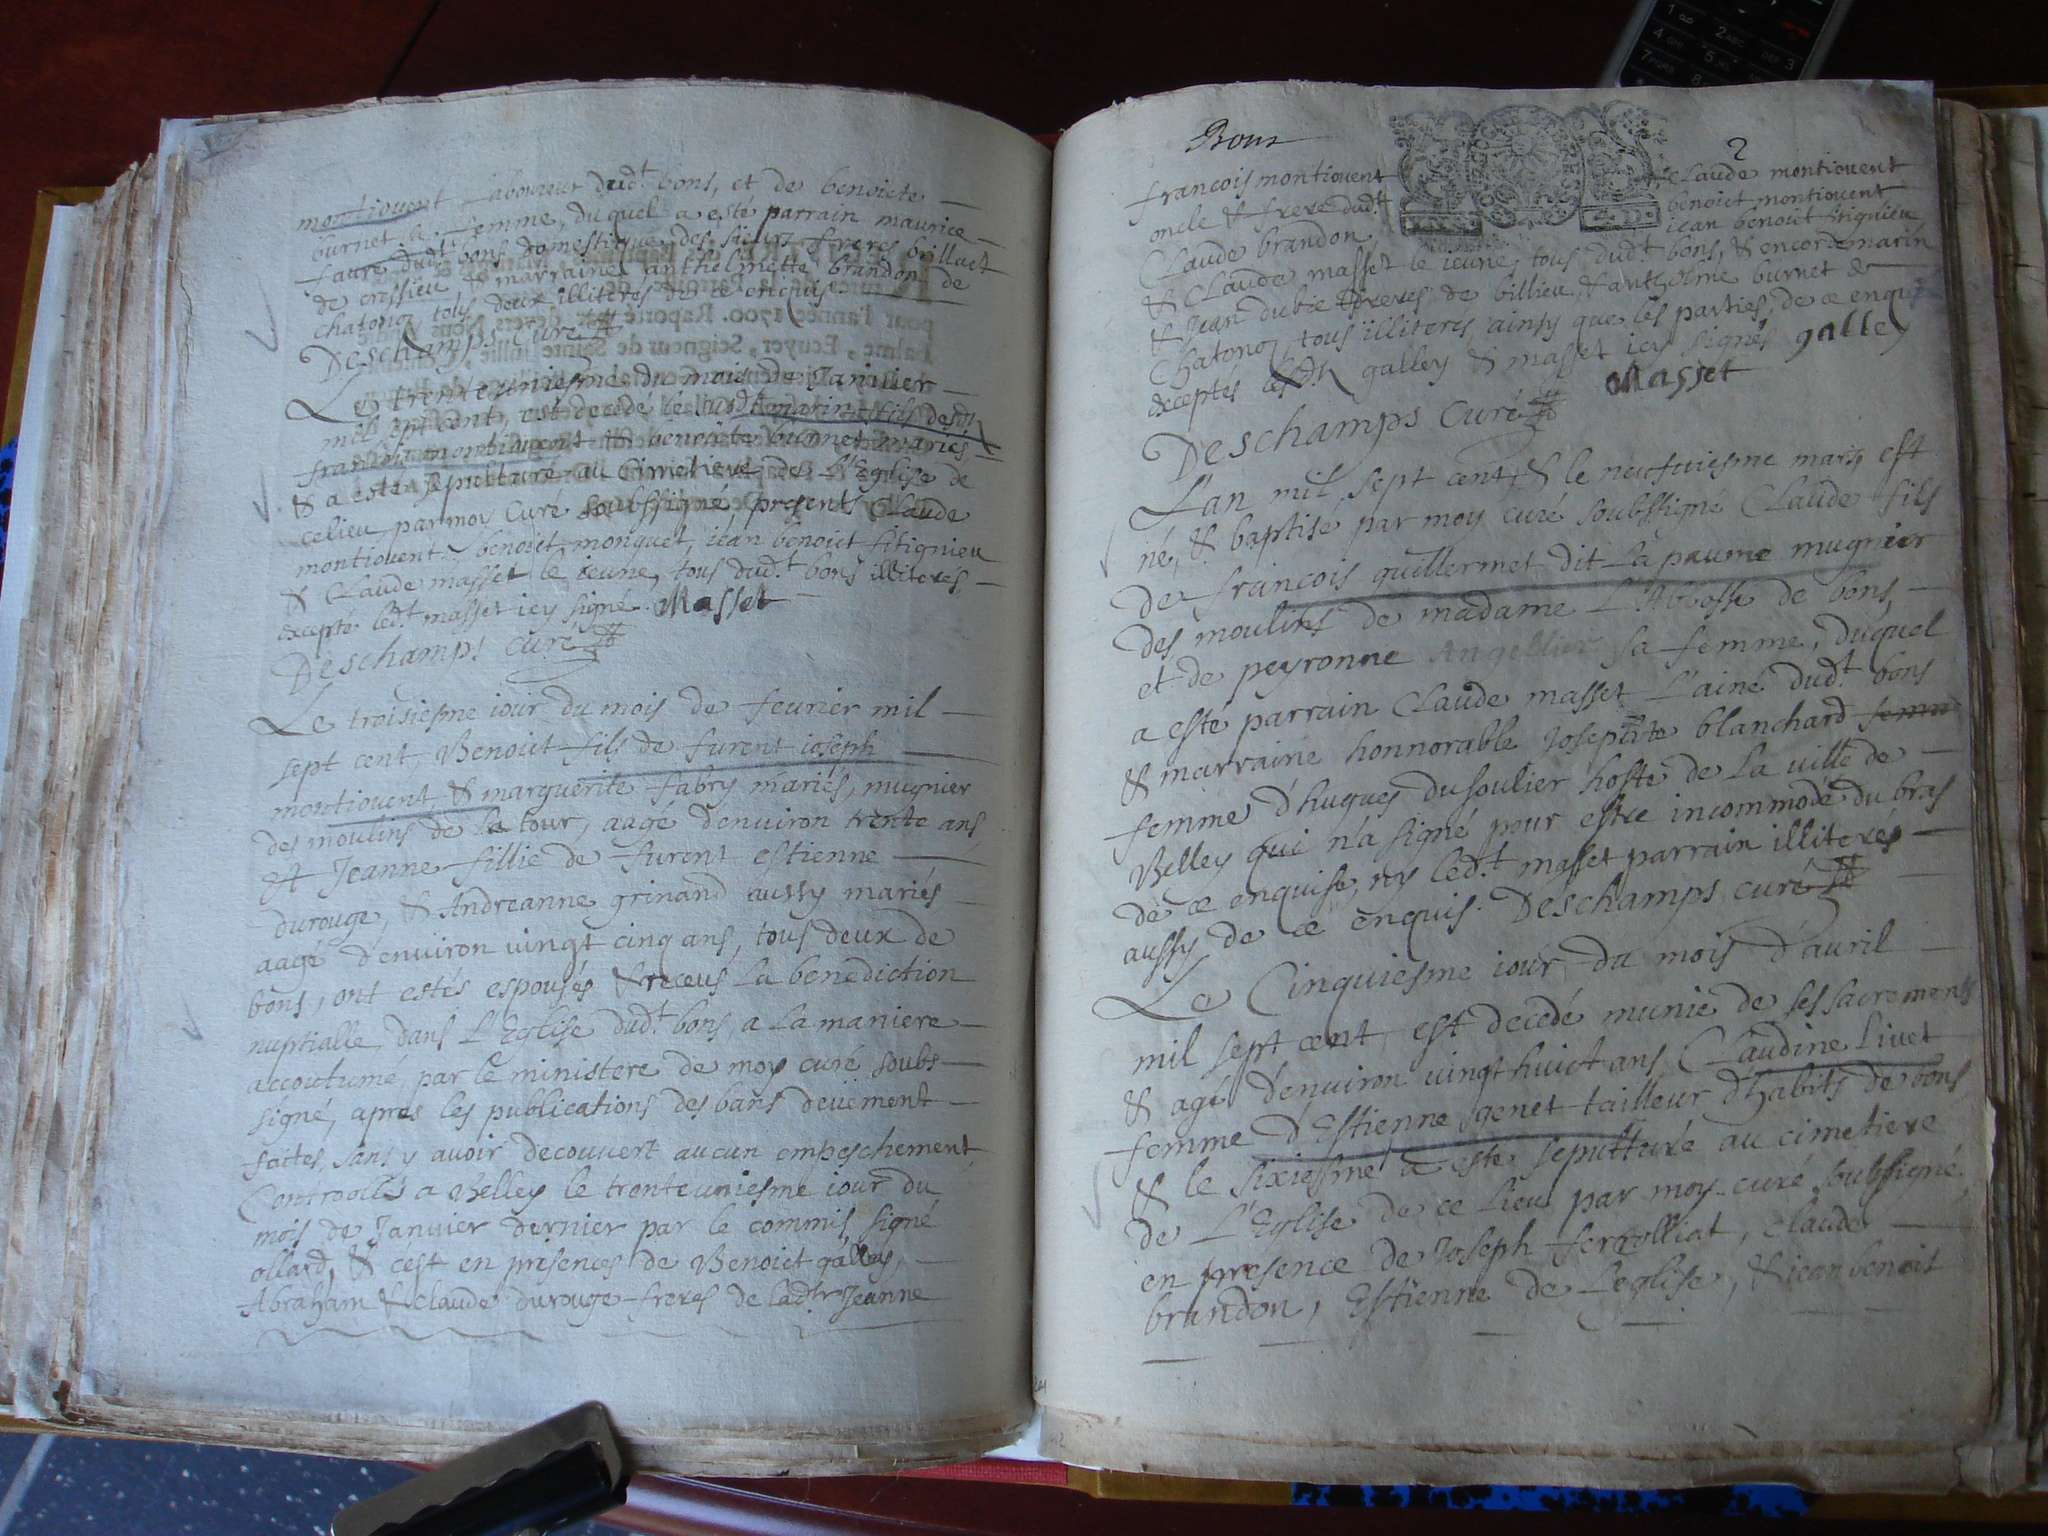 montiouent laboureur dud.t bons, et de benoicte
burnet sa femme, duquel a esté parrain maurice
faure dud.t bons domestique des sieurs freres brilluet
de cressieu & marraine anthelmette brandon de
chatonoz tous deux illiteres de ce enquis
Deschamps Curé
Le trente uniesme du mois de Januier
mil sept cent, est decedé le susd.t marin fils desd.ts
francois montiouent & benoite burnet mariés
& a esté sepulturé au cimetiere de L'Eglise de
celieu par moy Curé soubssigné present Claude
montiouent benoict monguet, iean benoict fitignieu
& Claude masset le ieune, tous dud.t bons illiterés
excepté led.t masset icy signé. Masset
Deschamps curé
Le troisiesme iour du mois de feurier mil
sept cent, Benoict fils de furent ioseph
montiouent, & marguerite fabry mariés, mugnier
des moulins de La tour, aagé d'enuiron trente ans,
et Jeanne fillie de furent estienne
durouge, & Andreanne grinand aussy mariés
aagé d'enuiron vingt cinq ans, tous deux de
bons, ont estés espousés & receus La benediction
nuptialle, dans L'Eglise dud.t bons a La maniere
accoutumé, par le ministere de moy curé soubs
signé, apres les publications des bans deüement
faites, sans y auoir decouuert aucun empeschement
Controollés a Belley le trente uniesme iour du
mois de Janvier dernier par le commis, signé
ollard, & c'est en présences de Benoict galley,
Abraham & Claude durouge freres de lad.te Jeanne
Bons
2
francois montiouent
Claude montiouent
oncle & frere dud.t
benoict montiouent
Claude brandon,
iean benoict fitignieu
& Claude masset le ieune, tous dud.t bons, & encor de marin
& Jean dubie freres, de billieu, & anthelme burnet de
Chatonoz, tous illiterés ainsy que les parties, de ce enquis
exceptés lesd.ts galley & masset icy signés galley
Masset
Deschamps Curé
L'an mil sept cent, & le neufuiesme mars est
né, & baptisé par moy curé soubssigné Claude fils
de francois guillermet dit La paume mugnier
des moulins de madame L'Abbesse de bons,
et de peyronne Angellier sa femme, duquel
a esté parrain Claude masset L'ainé dud.t bons
& marraine honnorable Josephte blanchard femm
femme d'hugues dusoulier hoste de La ville de
Belley qui n'a signé pour estre incommodé du bras
de ce enquise, ny led.t masset parrain illiterés
aussy de ce enquis. Deschamps curé
Le Cinquiesme iour du mois d'auril
mil sept cent, est decedé munie de ses sacrements
& agé d'enuiron vingt huict ans, Claudine Liuet
femme d'Estienne genet tailleur d'habits de bons
& le sixiesme a esté sepulturé au cimetiere
de L'Eglise de ce Lieu par moy curé soubssigné,
en presence de Joseph ferrolliat, Claude
brandon, Estienne de Leglise, & iean benoit